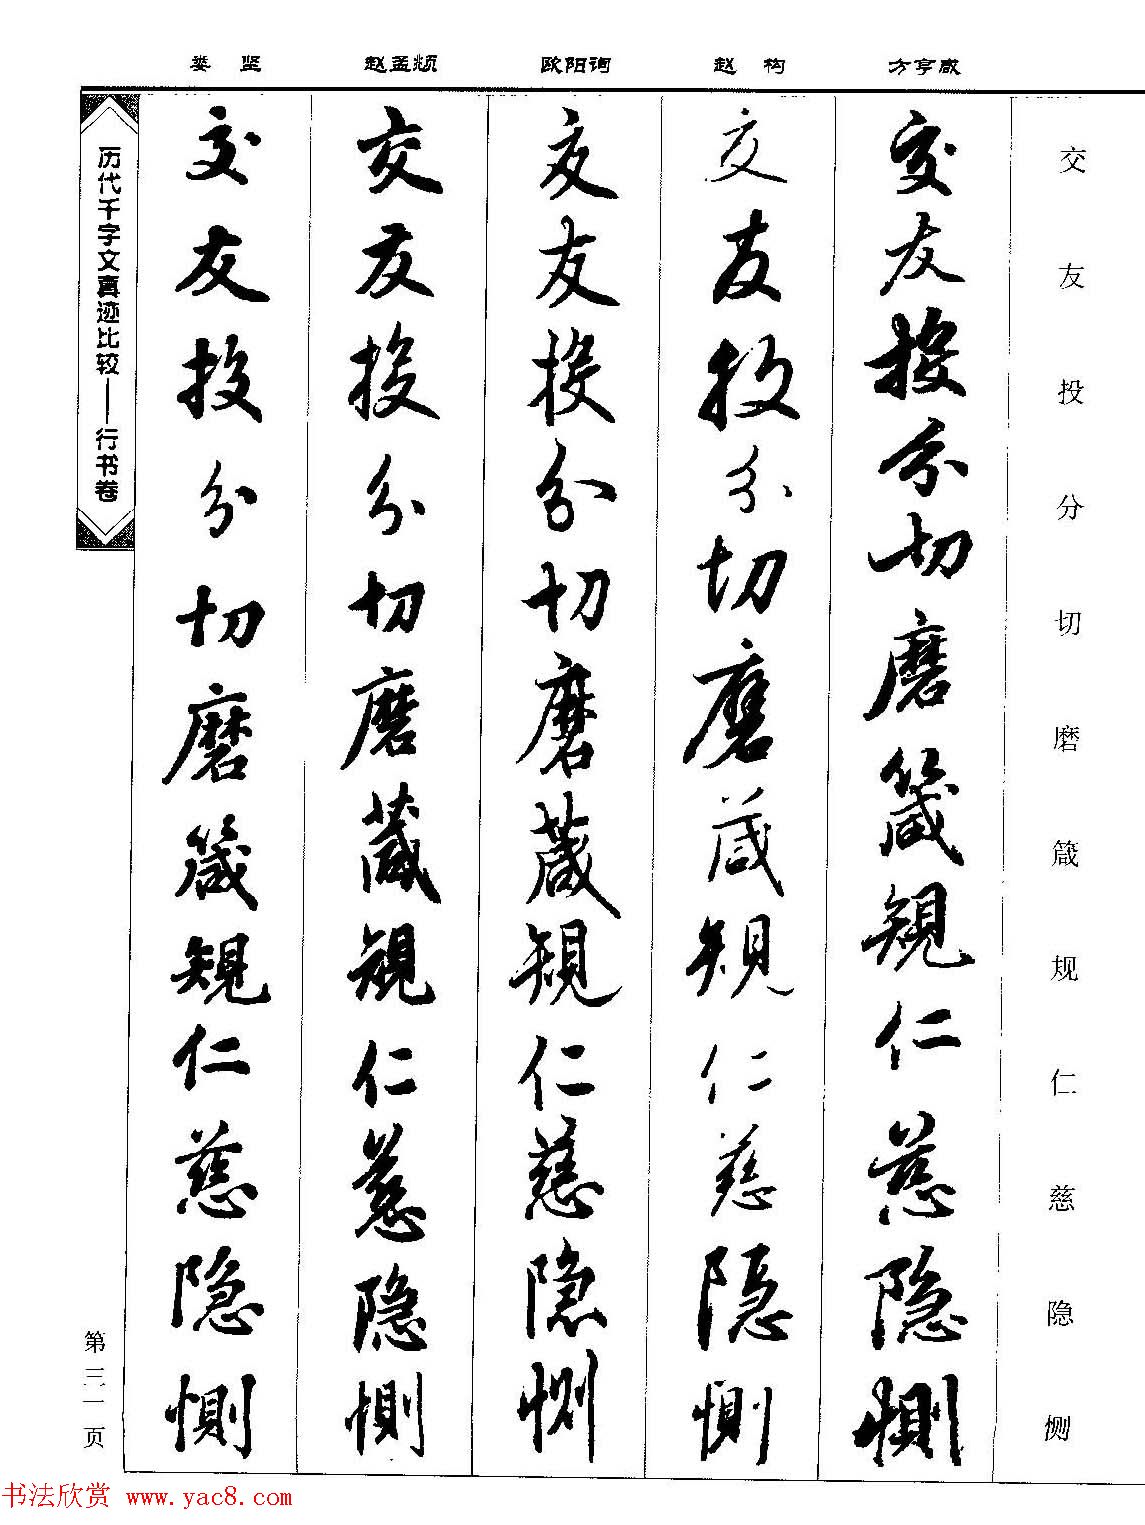 娄坚 赵孟頫 欧阳询 赵构 方亨咸
交友投分切磨箴规仁慈隐恻
交友投分切磨箴規仁慈隐惻
交友投分切磨箴規仁慈隐惻
交友投分切磨箴規仁慈隐惻
交友投分切磨箴規仁慈隐惻
交友投分切磨箴規仁慈隐惻
历代千字文真迹比较——行书卷
第三一页
书法欣赏 www.yac8.com